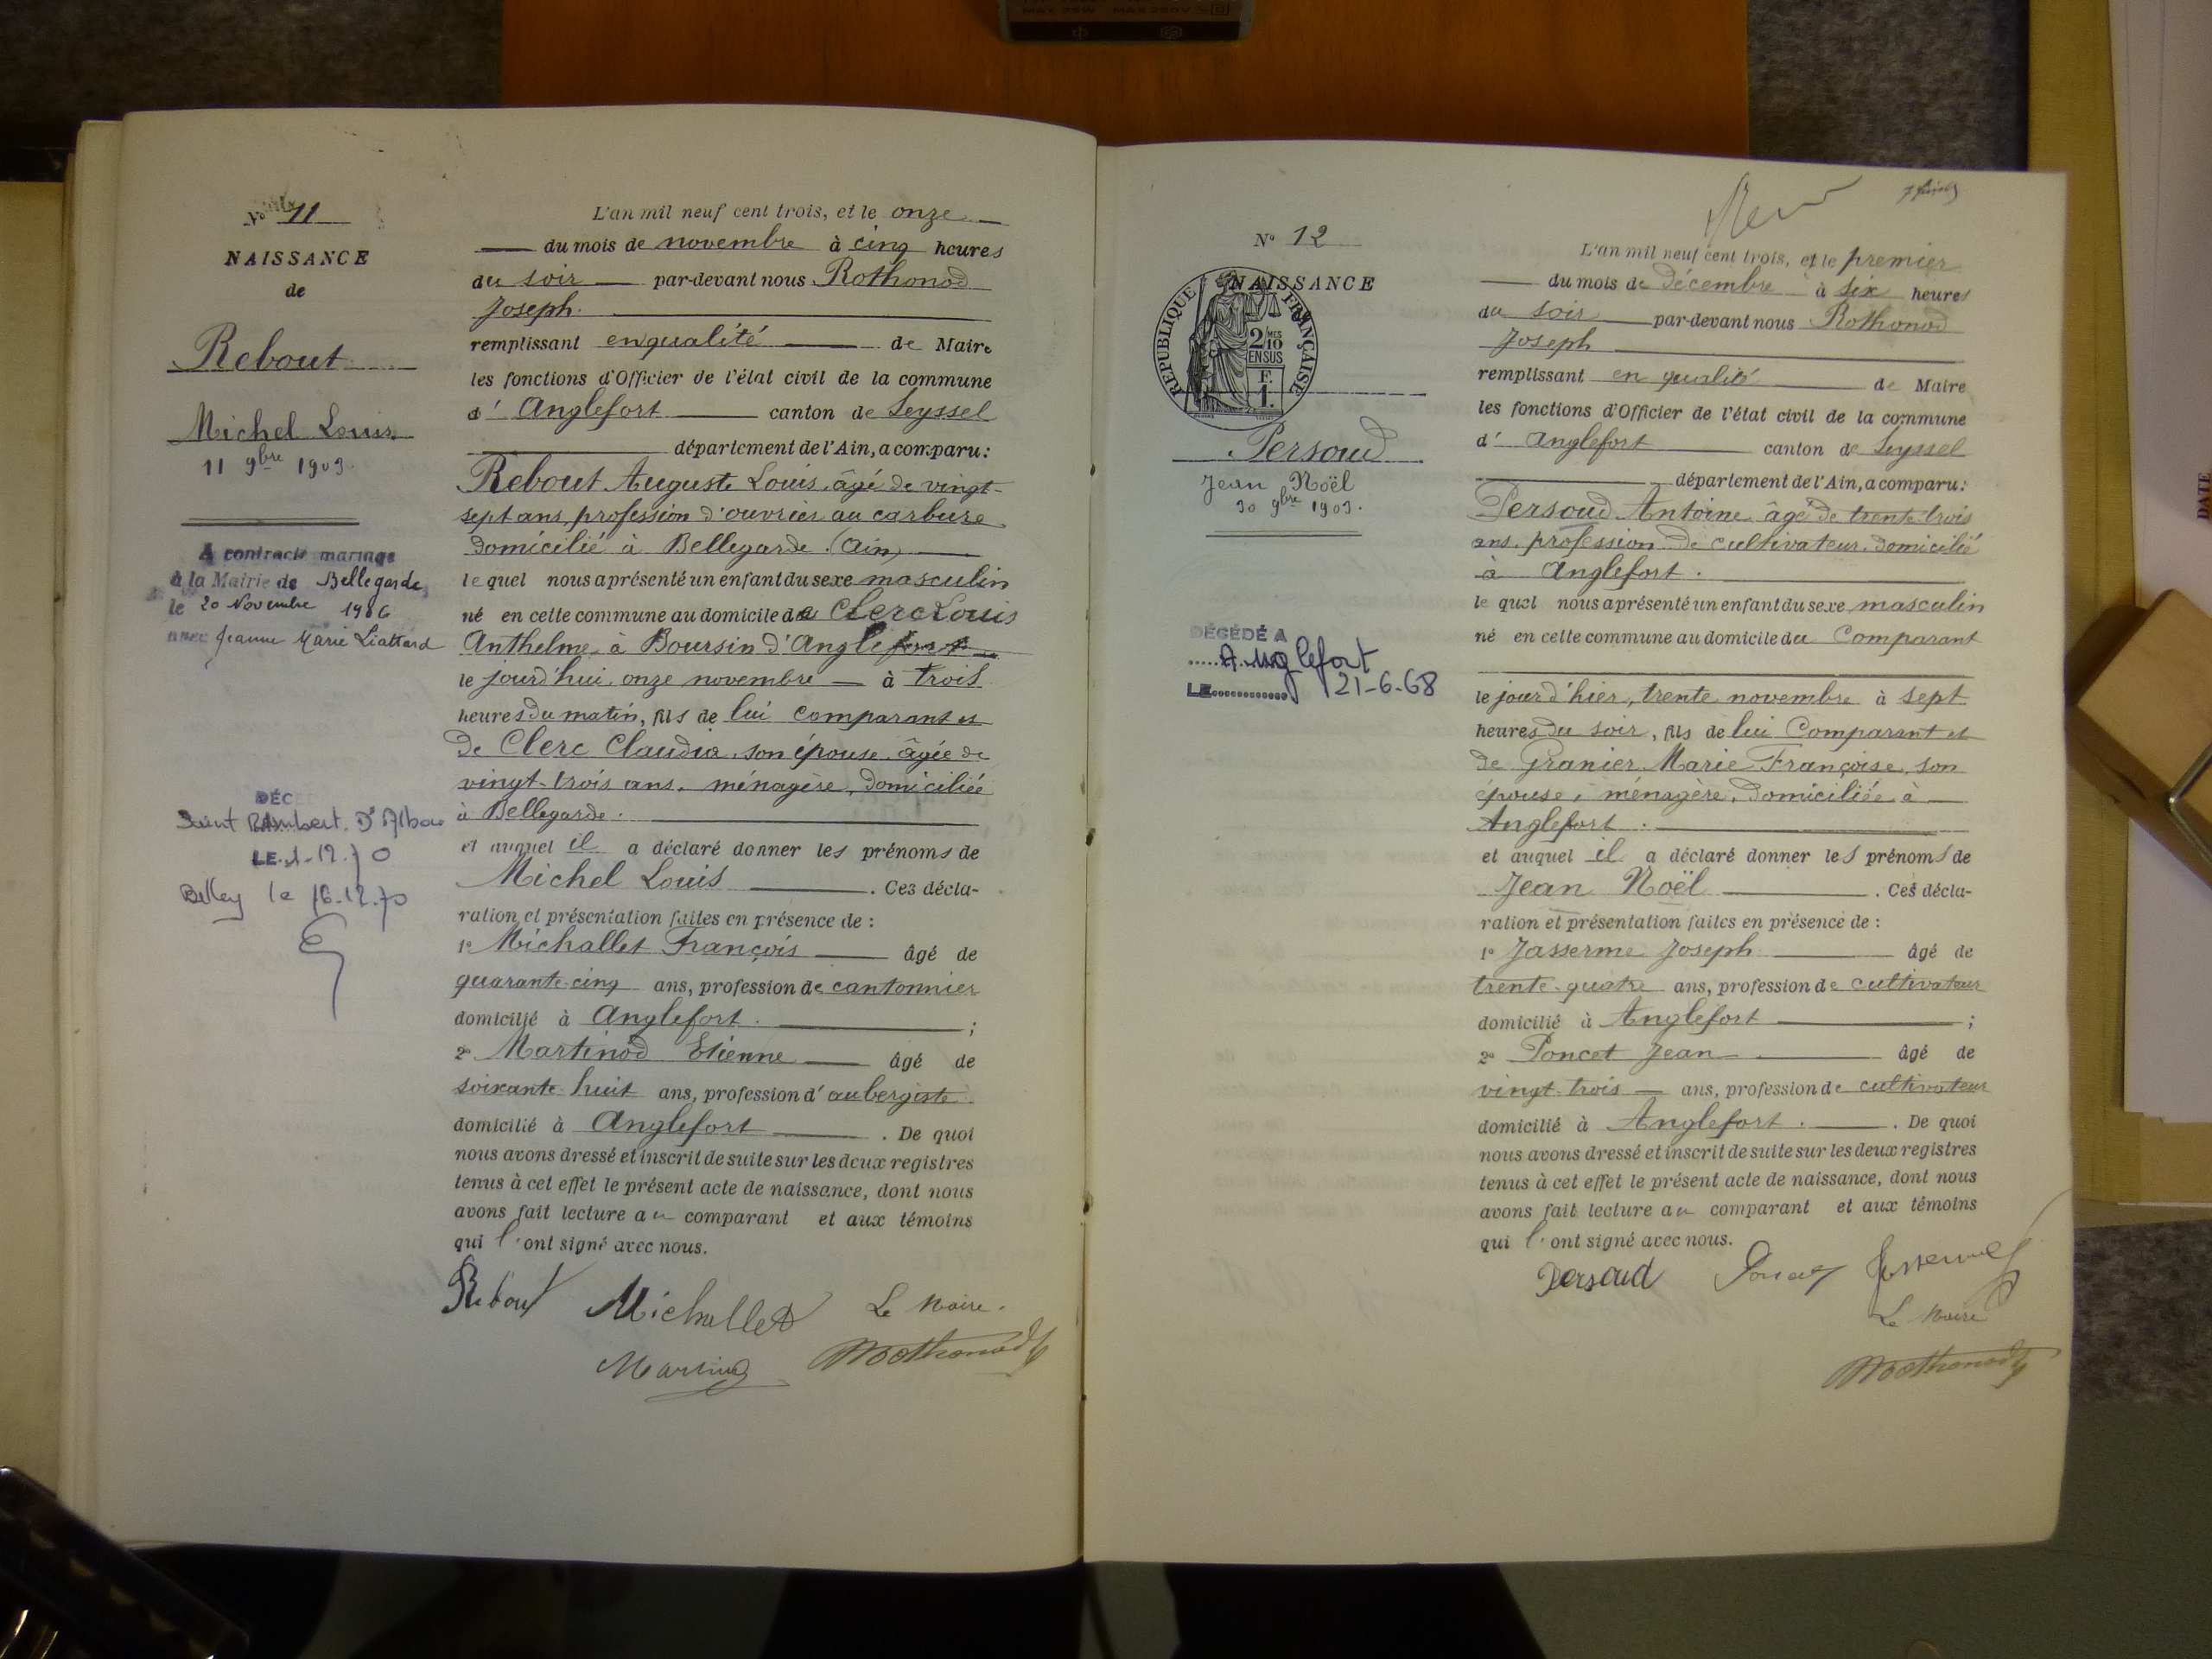 N° 11
NAISSANCE
de
Rebout
Michel Louis
11 9bre 1903.
A contracté mariage
à la Mairie de Bellegarde
le 20 Novembre 1926
avec Jeanne Marie Liattard
DÉC
Saint Rambert. D'Albon
LE 1-12.70
Belley le 16.12.70
L'an mil neuf cent trois, et le onze
du mois de novembre à cinq heures
du soir par-devant nous Rothonod
Joseph
remplissant en qualité de Maire
les fonctions d'Officier de l'état civil de la commune
d' Anglefort canton de Seyssel
département de l'Ain, a comparu:
Rebout Auguste Louis âgé de vingt-
sept ans, profession d'ouvrier au carbure
domicilié à Bellegarde (Ain)
le quel nous a présenté un enfant du sexe masculin
né en cette commune au domicile de Clerc Louis
Anthelme à Boursin d'Anglefort
le jourd'hui onze novembre à trois
heures du matin, fils de lui comparant et
de Clerc Claudia son épouse âgée de
vingt-trois ans, ménagère, domiciliée
à Bellegarde.
et auquel il a déclaré donner les prénoms de
Michel Louis . Ces décla-
ration et présentation faites en présence de :
1° Michallet François âgé de
quarante-cinq ans, profession de cantonnier
domicilié à Anglefort. ;
2° Martinod Etienne âgé de
soixante huit ans, profession d'aubergiste
domicilié à Anglefort . De quoi
nous avons dressé et inscrit de suite sur les deux registres
tenus à cet effet le présent acte de naissance, dont nous
avons fait lecture au comparant et aux témoins
qui l'ont signé avec nous.
Rebout Michallet Le Maire.
Martinod Rothonod
N° 12
NAISSANCE
RÉPUBLIQUE FRANÇAISE
2/10 MES
EN SUS
F.
1.
Persoud
Jean Noël
30 9bre 1903.
DÉCÉDÉ A
Anglefort
LE 21-6-68
L'an mil neuf cent trois, et le premier
du mois de décembre à six heures
du soir par-devant nous Rothonod
Joseph
remplissant en qualité de Maire
les fonctions d'Officier de l'état civil de la commune
d' Anglefort canton de Seyssel
département de l'Ain, a comparu:
Persoud Antoine âgé de trente trois
ans, profession de cultivateur, domicilié
à Anglefort.
le quel nous a présenté un enfant du sexe masculin
né en cette commune au domicile du Comparant
le jour d'hier, trente novembre à sept
heures du soir, fils de lui Comparant et
de Granier Marie Françoise, son
épouse, ménagère, domiciliée à
Anglefort.
et auquel il a déclaré donner les prénoms de
Jean Noël . Ces décla-
ration et présentation faites en présence de :
1° Jasserme Joseph âgé de
trente-quatre ans, profession de cultivateur
domicilié à Anglefort ;
2° Poncet Jean âgé de
vingt-trois ans, profession de cultivateur
domicilié à Anglefort. . De quoi
nous avons dressé et inscrit de suite sur les deux registres
tenus à cet effet le présent acte de naissance, dont nous
avons fait lecture au comparant et aux témoins
qui l'ont signé avec nous.
Persoud Poncet Jasserme
Le Maire
Rothonod
DATE